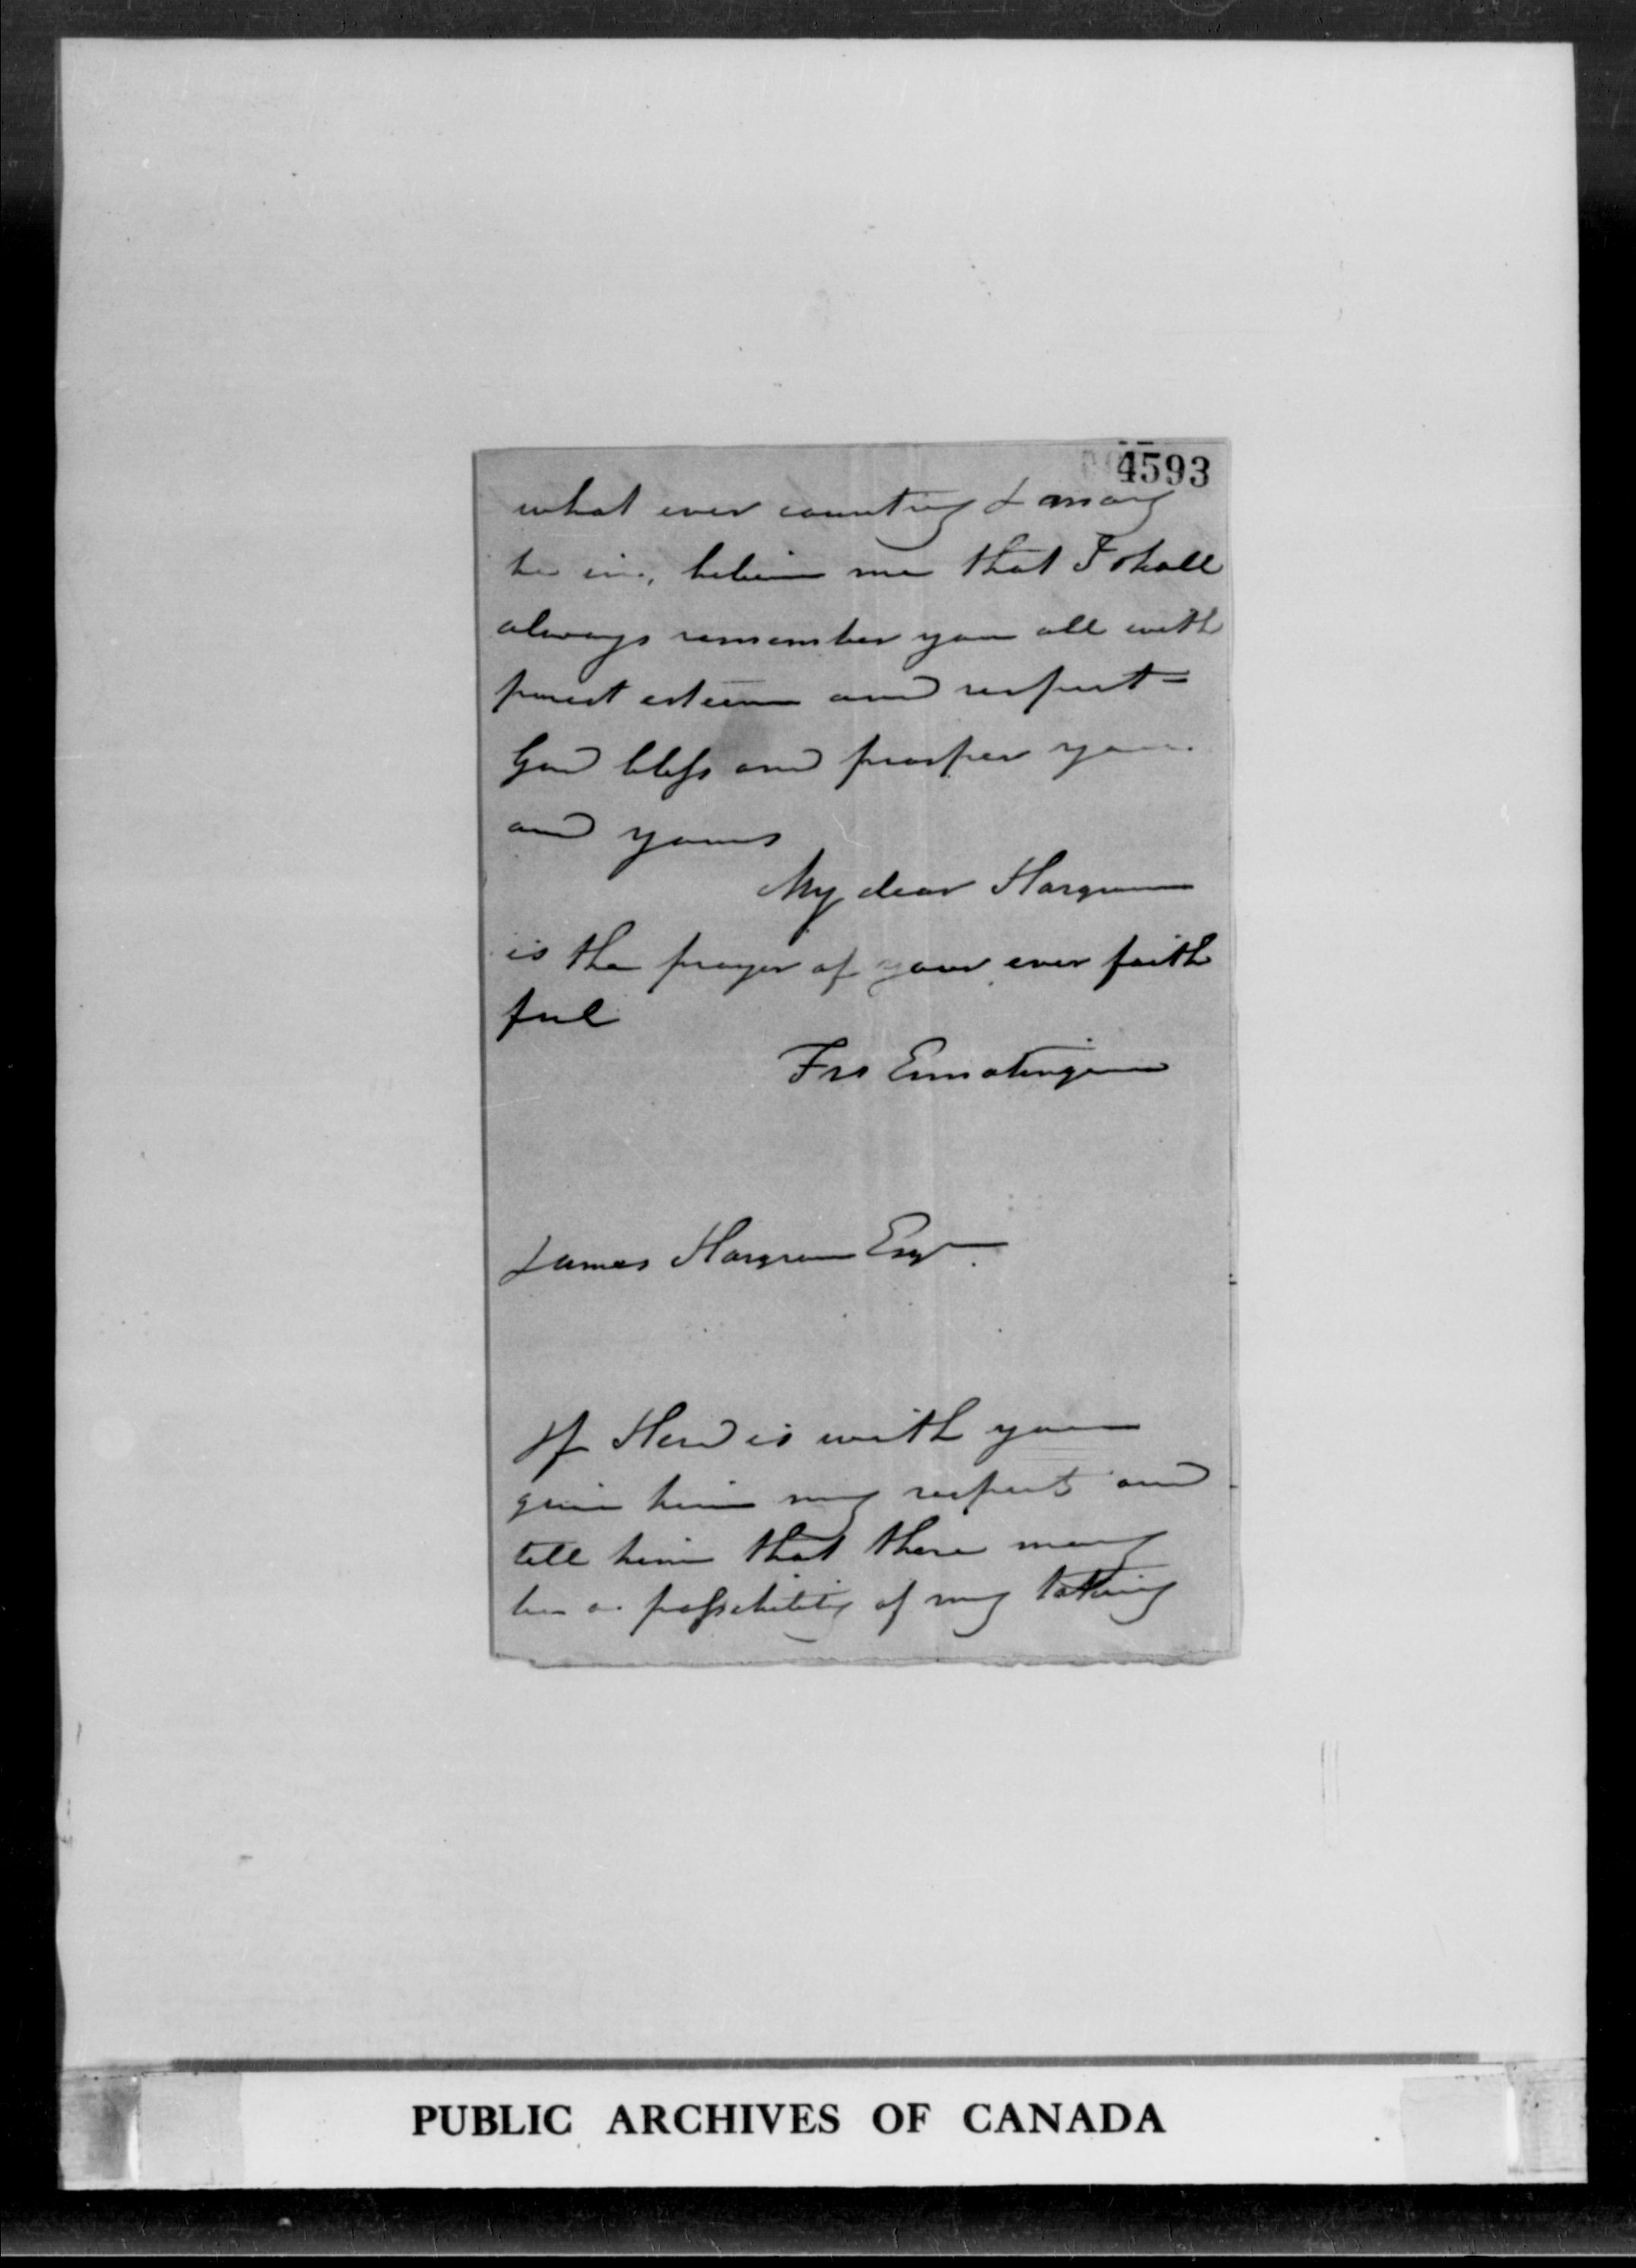 4593
what ever country I may
be in, believe me that I shall
always remember you all with
purest esteem and respect =
God bless and prosper you
and yours
My dear Hargrave
is the prayer of your ever faith
ful
Frs Ermatinger
James Hargrave Esqr
If Herd is with you
give him my respects and
tell him that there may
be a possibility of my taking
PUBLIC ARCHIVES OF CANADA